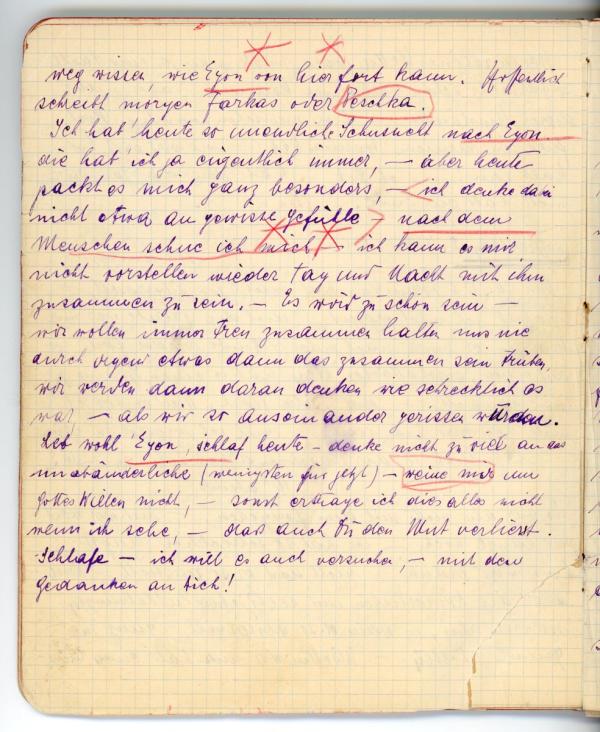 weg wissen, wie Egon von hier fort kann. Hoffentlich
schreibt morgen Farkas oder Peschka.
Ich hab' heute so unendliche Sehnsucht nach Egon.
die hab' ich ja eigentlich immer, – aber heute
packt es mich ganz besonders, – ich denke dabei
nicht etwa an gewisse Gefühle – nach dem
Menschen sehne ich mich – ich kann es mir
nicht vorstellen wieder Tag und Nacht mit ihm
zusammen zu sein. – Es wird zu schön sein –
wir wollen immer treu zusammen halten uns nie
durch irgend etwas dann das zusammen sein trüben,
wir werden dann daran denken wie schrecklich es
war, – als wir so auseinander gerissen wurden.
Leb wohl Egon, schlaf heute – denke nicht zu viel an das
unabänderliche (wenigsten für jetzt) – weine mir um
Gottes Willen nicht, – sonst ertrage ich dies alles nicht
wenn ich sehe, – das auch Du den Mut verlierst.
Schlafe – ich will es auch versuchen, – mit dem
Gedanken an Dich!